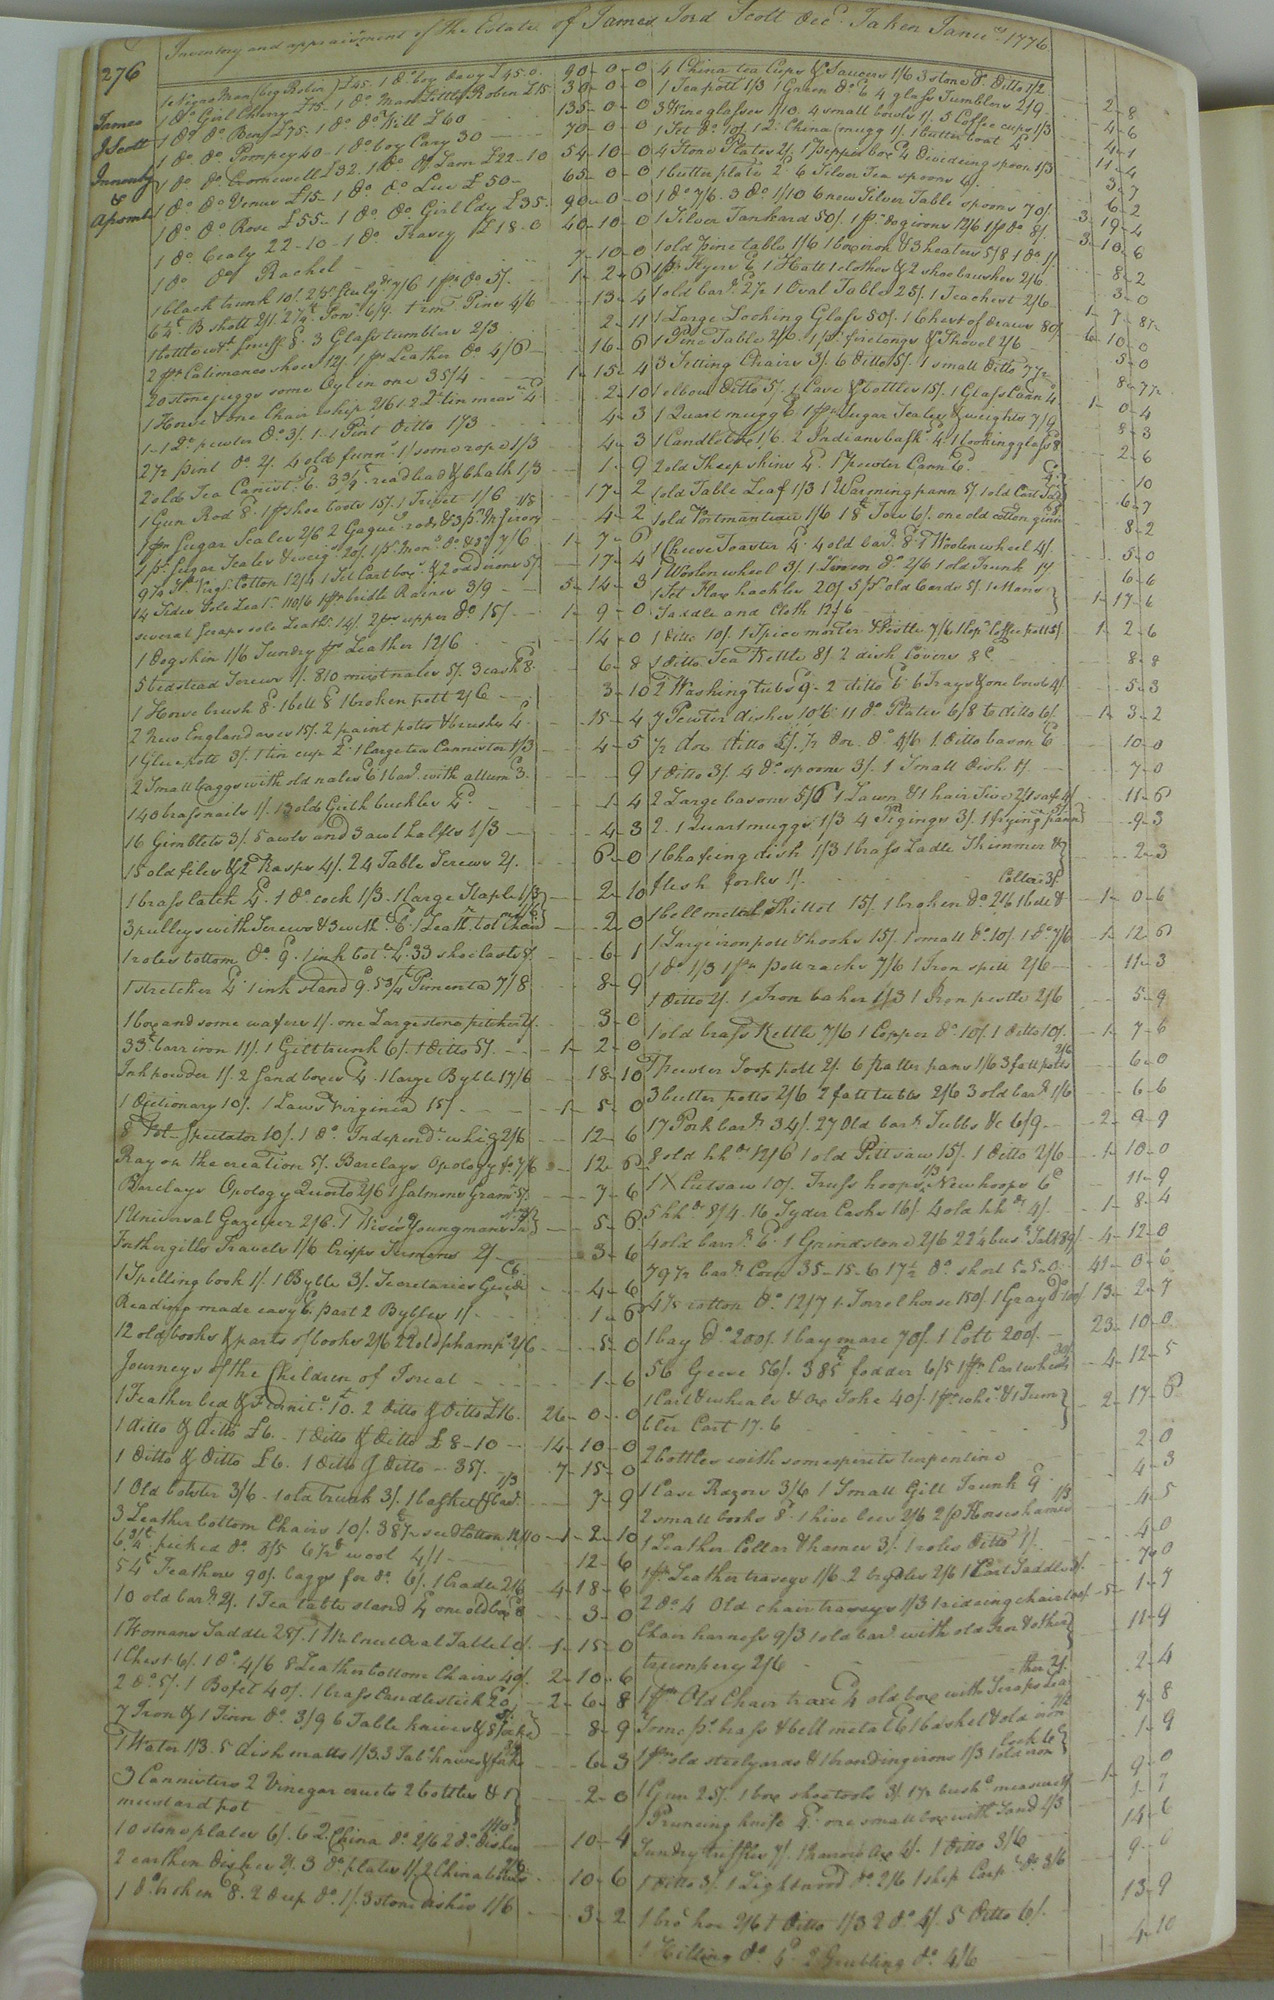 276
Inventory and appraisment of the Estate of James Jord Scott decd. Taken Janury 1776
James
J Scott
Inventy
&
Apsmt
1 Negro Man (big Robin) £45. 1 do boy Davy £45.0. 90-0-0
1 do Girl Cherry £15. 1 do Man Little Robin £15 30-0-0
1 do do Benj £75. 1 do do Will £60 135-0-0
1 do do Pompey 40 - 1 do boy Cary 30 70-0-0
1 do do Cromewell £32. 1 do do Sam £22-10 54-10-0
1 do do Venus £15 - 1 do do Luce £50 - 65-0-0
1 do do Rose £55 - 1 do do Girl Edy £35. 90-0-0
1 do Cealy 22-10 - 1 do Trasey £18-0 40-10-0
1 do do Rachel 7-10-0
1 black trunk 10/. 7/6 1 pr do 5/. 1-2-6
B. shott 2/1 6/9. Pins 4/6 13-4
1 bottle wt. snuff 8. 3 Glass tumblers 2/3 2-11
2 pr Calimanco shoes 12/. 1 pr Leather do 4/6 16-6
20 stone juggs some Oyl in one 35/4 1-15-4
1 Horse & one Chair whip 2/6 tin 2-10
1 - 1 Qt pewter do 3/. 1 - 1 Pint Ditto 1/3 4-3
2 1/2 pint do 2/. 4 old funns 1/ some rope 1/3 4-3
2 old Tea Canistrs 6. read lead & Chalk 1/3 1-9
1 Gun Rod 8. 1 pr shoe tools 15/. 1 Trivet 1/6 17-2
1 pr Sugar Scales 2/6 4-2
1 pr. Sugar Scales & weigts 20/. 7/6 1-7-6
Virga. Cotton 12/4 1 Set Cart boxs & 2 odd irons 5/. 17-4
14 Sides Sole Leatr. 110/6 1 pr bridle Raines 3/9 5-14-3
several Scraps sole Leathr 14/. 2 prs upper do 15/. 1-9-0
1 dogskin 1/6 Sundry prs Leather 12/6 14-0
5 bedstead Screws 1/. 810 mixt nales 5/. 3 casks 8. 6-8
1 Horse brush 8. 1 bell 8 1 broken pott 2/6 3-10
2 New England axes 15/. 2 paint potts & brushes 4. 15-4
1 Glue pott 3/. 1 tin cup 2. 1 large tea Cannister 1/3 4-5
2 Small baggs with old nales 6 1 bar. with allum 3. 9
140 brass nails 1/. 13 old Girth buckles 4. 1-4
16 Gimblets 3/. 5 awls and 3 awl hafts 1/3 4-3
15 old files & 2 Rasps 4/. 24 Table Screws 2/. 6-0
1 brass latch 4. 1 do cock 1/3. 1 large Staple 1/3 2-10
3 pulleys with Screws & 3 with 6. 1 Leathr. bot Chair 2-0
1 roles bottom do 9. 1 ink botl. 4. 33 shoe lasts 5/. 6-1
1 stretcher 4. 1 ink stand 9. 5 3/4 Pimenta 7/8 8-9
1 box and some wafers 1/. one Large stone pitcher 2/. 3-0
33 barr iron 11/. 1 Gilt trunk 6/. 1 Ditto 5/. 1-2-0
Ink powder 1/. 2 sand boxes 4. 1 large Byble 17/6 18-10
1 dictionary 10/. 1 Laws Virginia 15/. 1-5-0
8 Vol. Spectator 10/. 1 do Independt. whig 2/6 12-6
Ray on the creation 5/. Barclays Opology fo. 7/6 12-6
Barclays Opology Quarto 2/6 1 Salmons Gramr. 5/. 7-6
1 Universal Gazeteer 2/6. 1 Wises Youngmans 5-6
Fothergills Travels 1/6 Crisps Sermons 2/. 3-6
1 Spelling book 1/. 1 Byble 3/. Secretaries Guide C6. 4-6
Reading made easy 6. part 2 Bybles 1/. 1-6
12 old books & parts of books 2/6 22 old phamps. 2/6 5-0
Journeys of the Children of Isreal 1-6
1 Feather bed & Furnitr. 10. 2 ditto & Ditto £16. 26-0-0
1 ditto & Ditto £6. - 1 Ditto & Ditto £8-10 14-10-0
1 Ditto & Ditto £6. 1 Ditto & Ditto 35/. 7-15-0
1 Old bolster 3/6 - 1 old trunk 3/. 1 basket & bar. 1/3 7-9
3 Leather bottom Chairs 10/. seed Cotton 12/10 1-2-10
picked do. 8/5 wool 4/1 12-6
54 Feathers 90/. baggs for do. 6/. 1 Cradle 2/6 4-18-6
10 old bars. 2/. 1 Tea table stand 4 one old box 8 3-0
1 Womans Saddle 25/. 1 Walnut Oval Table 10/. 1-15-0
1 Chest 6/. 1 do 4/6 8 Leather bottom Chairs 40/. 2-10-6
2 do 5/. 1 Bofet 40/. 1 brass Candlestick 20. 2-6-8
7 Iron & 1 Tinn do. 3/9 6 Table knives & 5 forks 8-9
1 Water 1/3. 5 dish matts 1/3. 3 Tabl. knives & forks 3/9 6-3
3 Cannisters 2 Vinegar cruets 2 bottles & 1 mustard pot 2-0
10 stone plates 6/. 6 China do. 2/6 2 do dishes 1/10. 10-4
2 earthen dishes 2/. 3 do plates 1/. 2 China bowls 10-6
1 do broken 8. 2 deep do. 1/. 3 stone dishes 1/6 3-2
4 China tea Cups & Saucers 1/6 3 stone do Ditto 1/2 2-8
1 Teapott 1/3 1 Green do 6 4 glass Tumblers 2/9 4-6
3 Wine glasses 1/10. 4 small bowls 1/. 3 Coffee cups 1/3 4-1
1 Set do 10/. 1 China mugg 1/. 1 butter boat 4 11-4
4 Stone Plates 2/. 1 Pepper box 4 Dividing spoon 1/3 3-7
1 butter plate 2. 6 Silver Tea spoons 6/. 6-2
1 do 7/6. 3 do 1/10 6 new Silver Table spoons 70/. 3-19-4
1 Silver Tankard 50/. 1 pr. dog irons 12/6 1 pr do 8/. 3-10-6
1 old pine table 1/6 1 box iron & 3 heaters 5/8 1 do 1/. 8-2
1 pr Flyers 6. 1 Hatt 1 clothes & 2 shoe brushes 2/6 3-0
1 old barl. 1 Oval Table 25/. 1 Teachest 2/6 1-7-8 1/2
1 Large Looking Glass 50/. 1 Chest of draws 80/. 6-10-0
1 Pine Table 2/6. 1 pr. fire tongs & Shovel 2/6 5-0
3 Setting Chairs 3/. 6 Ditto 5/. 1 small Ditto 8-7 1/2
1 elbow Ditto 5/. 1 Case & bottles 15/. 1 Glass Cann 4. 1-0-4
1 Quart mugg 6 1 pr Sugar Scales & weights 7/9 8-3
1 Candle box 1/6. 2 Indian baskts 4 1 Looking glass 8 2-6
2 old Sheep skins 4. 1 Pewter Cann 6. 10
1 old Table Leaf 1/3 1 Warming pann 5/. 1 old Cart 6-7
1 old Portmanteau 1/6 1 Tow 6/. one old cotton ginn 8-2
1 Cheese Toaster 4. 4 old bars. 8. 1 Woolen wheel 4/. 5-0
1 Woolen wheel 3/. 1 Linnen do 2/6 1 old Trunk 1/. 6-6
1 Set Flax hackles 20/. 5 pr old Cards 5/. 1 Mans
Saddle and Cloth 12/6 1-17-6
1 Ditto 10/. 1 Spice morter & Pestle 7/6 1 Copr Coffee pott 5/. 1-2-6
1 Ditto Tea Kettle 8/. 2 dish Covers 8. 8-8
2 Washing tubs 9. 2 ditto 6. 6 Trays & one bowl 4/. 5-3
7 Pewter dishes 10/6. 11 do Plates 6/8 6 ditto 6/. 1-3-2
1/2 doz. ditto 5/. 1/2 doz. do 4/6 1 Ditto bason 6 10-0
1 Ditto 3/. 4 do spoons 3/. 1 Small dish 1/. 7-0
2 Large basons 5/6 1 Lawn & 1 hair Sive 2/. 1 11-6
2. 1 Quart muggs 1/3 4 Piggings 3/. 1 frying pann 5/. 9-3
1 Chafeing dish 1/3 1 brass Ladle Skimmer &
flesh forks 1/. 2-3
1 bell mettal Skillet 15/. 1 broken do 2/6 1 bell & Collar 3/. 1-0-6
1 Large iron pott & hooks 15/. 1 small do 10/. 1 do 7/6 1-12-6
1 do 1/3 1 pr. pott racks 7/6 1 Iron spitt 2/6 11-3
1 Ditto 2/. 1 Iron baker 1/3 1 Iron pestle 2/6 5-9
1 old brass Kettle 7/6 1 Copper do 10/. 1 Ditto 10/. 1-7-6
1 Pewter Soop pott 2/. 6 Platter pans 1/6 3 fatt potts 2/6 6-0
3 butter potts 2/6 2 fatt tubbs 2/6 3 old bars. 1/6 6-6
17 Pork bars. 34/. 27 Old bars. Tubbs &c 6/9 2-9-9
8 old hhds 12/6 1 old Pitt saw 15/. 1 Ditto 2/6 1-10-0
1 X Cutsaw 10/. Truss hoops 1/3 New hoops 6 11-9
5 hhds 8/4. 16 Syder Casks 16/. 4 old hhds 4/. 1-8-4
4 old barrs. 6. 1 Grindstone 2/6 22 1/4 bus. Salt 89/. 4-12-0
79 1/2 bars. Corn 35-15-6 17 1/2 do. short 5-5-0 41-0-6
4 1/2 cotton do. 12/7 1 Sorrel horse 150/. 1 Gray do 100/. 13-2-7
1 bay do. 200/. 1 bay mare 70/. 1 Colt 200/. 23-10-0
56 Geese 56/. 385 fodder 6/5 1 pr. Cart wheels 30/. 4-12-5
1 Cart & wheals & Ox Yoke 40/. 1 & 1 Tum
bler Cart 17.6 2-17-6
2 bottles with some spirits turpentine 2-0
1 Case Razors 3/6 1 Small Gill Trunk 9. 4-3
2 small books 8. 1 hive bees 2/6 2 pr Horse hames 1/3 4-5
1 Leather Collar & hames 3/. 1 roles Ditto 1/. 4-0
1 pr Leather traseys 1/6. 2 brydles 2/6 1 Cart Saddle 3/. 7-0
2 do. 4 Old chair traseys 1/3 1 rideing chair 100/. 5-1-7
Chair harness 9/3 1 old bar. with old Iron & other
trumpery 2/6 11-9
1 pr Old Chair trace 4 old box with Scraps Lea
ther 2/. 2-4
Some ps. brass & bell mettal 6/ 1 basket & old iron 7-8
1 pr old steelyards & 1 branding irons 1/3 1 old iron lock 6 1-9
1 Gun 25/. 1 box shoe tools 3/. 1 1/2 bushs. measure 1-9-0
1 Pruneing knife 4. one small box with Sand 1/3 1-7
Sundry trifles 7/. 1 narrow Ax 4/. 1 Ditto 3/6 14-6
1 Ditto 3/. 1 Lightwood do. 2/6 1 ship Carpr. do. 3/6 9-0
1 bro. hoe 2/6 1 Ditto 1/3 2 do 4/. 5 Ditto 6/. 13-9
1 Hilling do. 4. 2 Grubbing do. 4/6 4-10